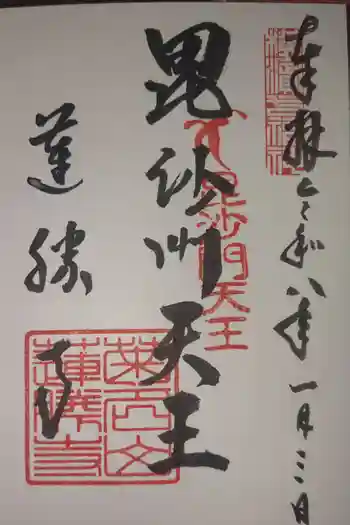 奉拝 令和八年 一月三日
毘沙門天王
毘沙門天王
蓮勝寺
蓮勝寺